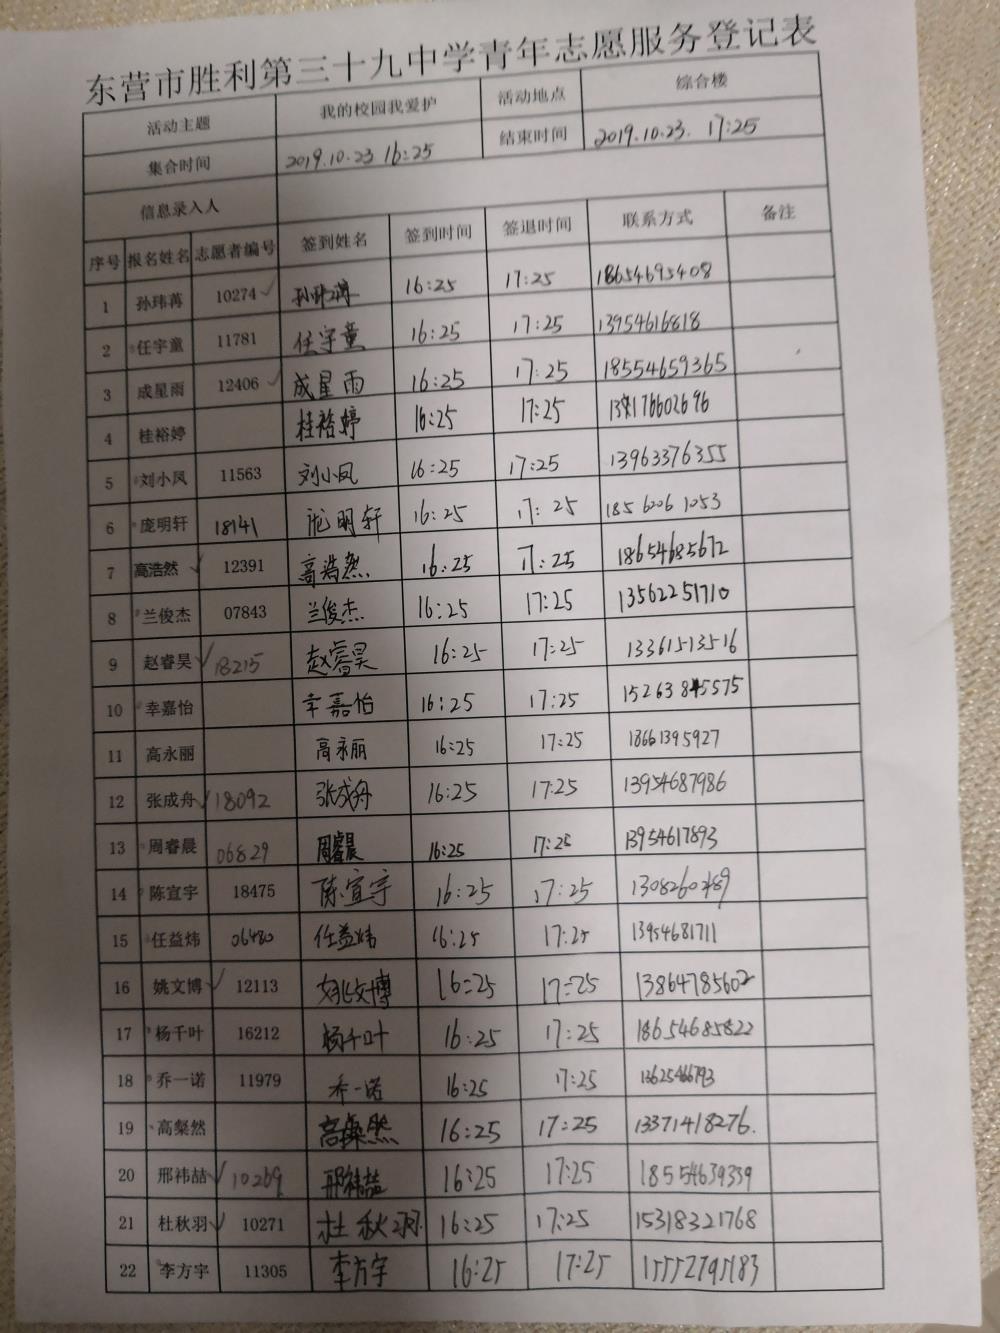 东营市胜利第三十九中学青年志愿服务登记表
活动主题 我的校园我爱护 活动地点 综合楼
集合时间 2019.10.23 16:25 结束时间 2019.10.23. 17:25
信息录入人
序号 报名姓名 志愿者编号 签到姓名 签到时间 签退时间 联系方式 备注
1 孙玮苒 10274 ✓ 16:25 17:25 18654695408
2 任宇童 11781 任宇童 16:25 17:25 13954616818
3 成星雨 12406 ✓ 成星雨 16:25 17:25 18554659365
4 桂裕婷 桂裕婷 16:25 17:25
5 刘小凤 11563 刘小凤 16:25 17:25 13963376355
6 庞明轩 18141 庞明轩 16:25 17:25 185 6206 1053
7 高浩然 ✓ 12391 高浩然 16:25 17:25 18654685672
8 兰俊杰 07843 兰俊杰 16:25 17:25 13562251710
9 赵睿昊 ✓ 18215 赵睿昊 16:25 17:25 13361513516
10 幸嘉怡 幸嘉怡 16:25 17:25
11 高永丽 高永丽 16:25 17:25 18661395927
12 张成舟 ✓ 18092 张成舟 16:25 17:25 13954687986
13 周睿晨 06829 周睿晨 16:25 17:25 13954617893
14 陈宣宇 18475 陈宣宇 16:25 17:25
15 任益炜 06480 任益炜 16:25 17:25 13954681711
16 姚文博 ✓ 12113 姚文博 16:25 17:25 13864785602
17 杨千叶 16212 杨千叶 16:25 17:25 18654685822
18 乔一诺 11979 乔一诺 16:25 17:25
19 高粲然 高粲然 16:25 17:25 13371418276.
20 邢祎喆 ✓ 10269 邢祎喆 16:25 17:25 18554639339
21 杜秋羽 ✓ 10271 杜秋羽 16:25 17:25 15318321768
22 李方宇 11305 李方宇 16:25 17:25 15552795183